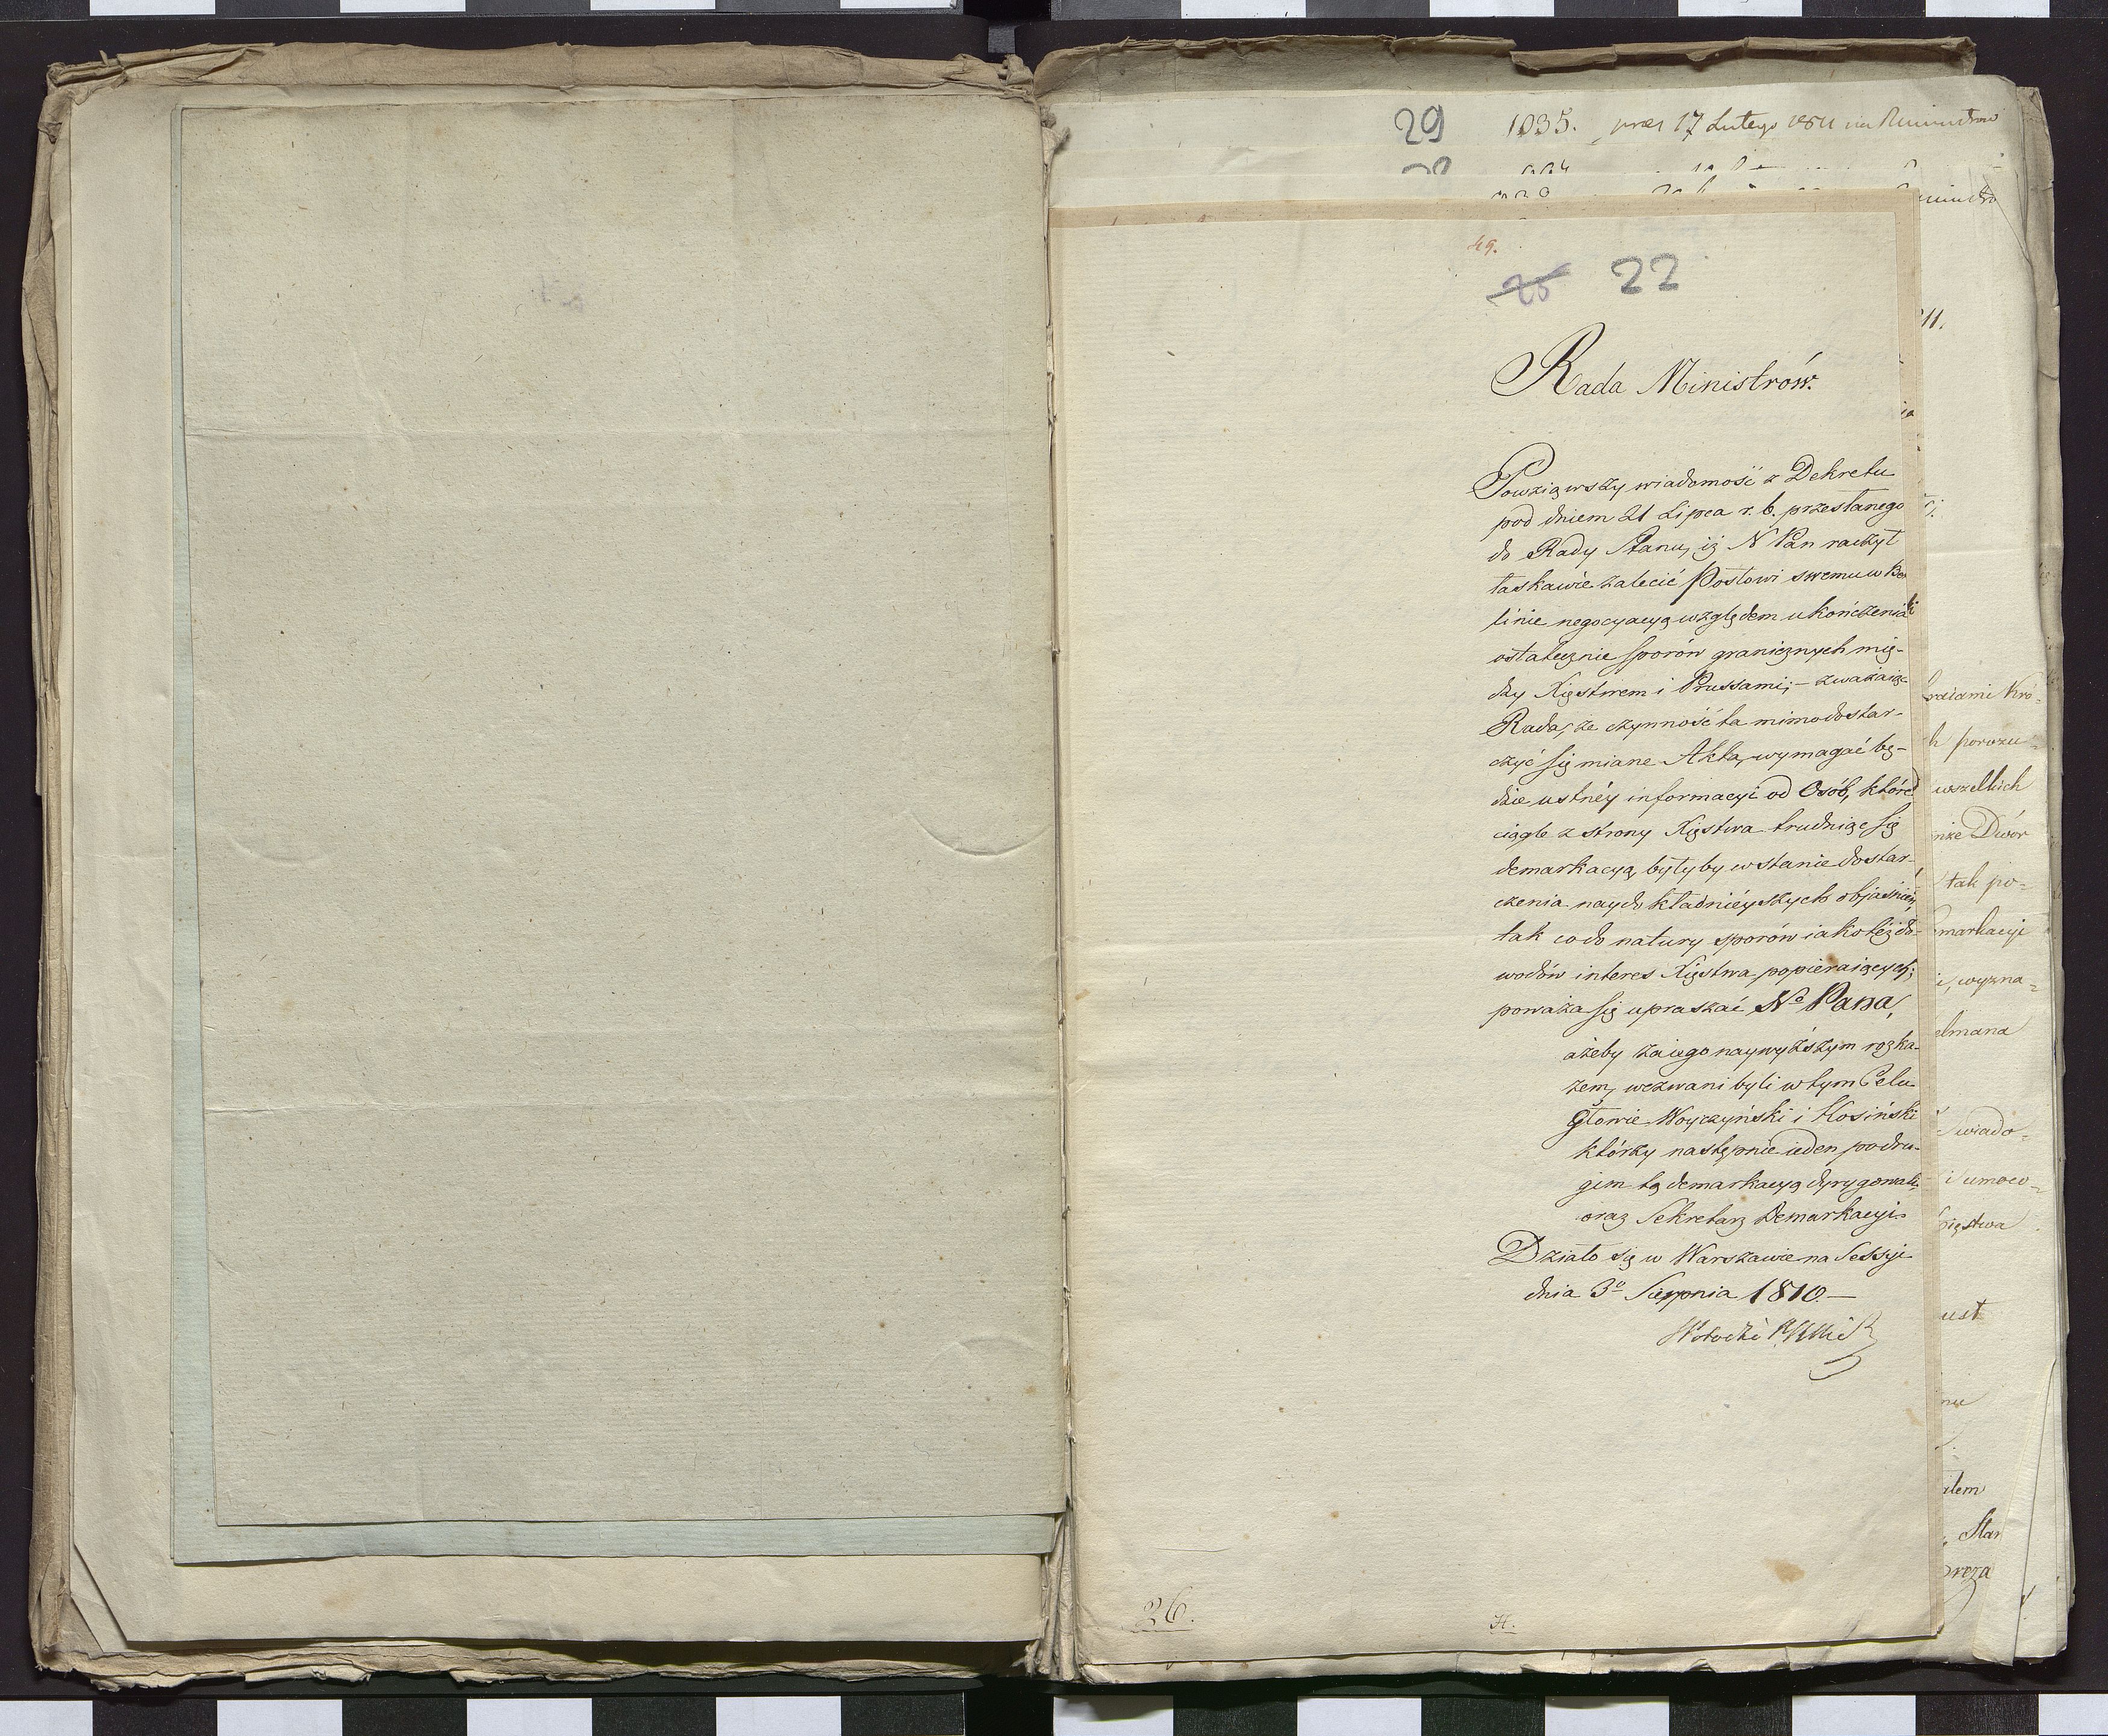 29 1035. prae 17 Lutego 1811 na
49.
26 22
Rada Ministrów.
Powziąwszy wiadomość z Dekretu
pod dniem 21 Lipca r. b. przesłanego
do Rady Stanu, iż N Pan raczył
łaskawie zalecić Posłowi swemu w Ber
linie negocyacyą względem ukończenia
ostatecznie sporów granicznych mię-
dzy Xięstwem i Prussami; – zważaiąc
Rada, że czynność ta mimo dostar-
czyć się miane Akta, wymagać bę-
dzie ustnéy informacyi od Osób, które
ciągle z strony Xięstwa trudniąc się
demarkacyą, byłyby w stanie dostar-
czenia naydokładnieyszych objaśnień,
tak co do natury sporów iako też do-
wodów interes Xięstwa popieraiących;
poważa się upraszać No Pana,
ażeby za iego naywyższym rozka-
zem, wezwani byli w tym Celu
Głowie Woyczyński i Kosiński
którzy następnie ieden po dru-
gim tą demarkacyą dyrygowali,
oraz Sekretarz Demarkacyi.
Działo się w Warszawie na Sessyi
dnia 3o Sierpnia 1810. –
26.
H.
11.
raiami Kró-
h porozu-
wszelkich
nże Dwór
tak po-
markacyi
i, wyzna-
elmana
wiado-
i umoco-
pięstwa
ust
nie
ałem
, Star
oreza